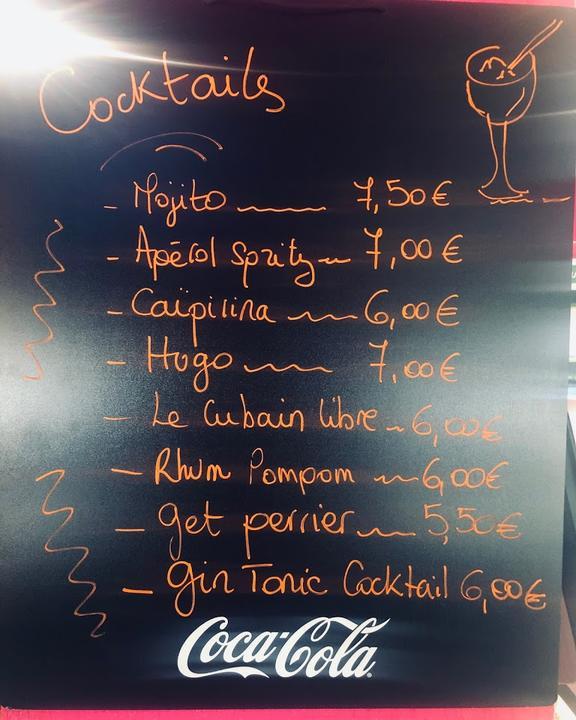 Cocktails
- Mojito 7,50€
- Apérol Spritz 7,00€
- Caïpirina 6,00€
- Hugo 7,00€
- Le Cubain libre 6,00€
- Rhum Pompom 6,00€
- get perrier 5,50€
- gin Tonic Cocktail 6,00€
Coca-Cola